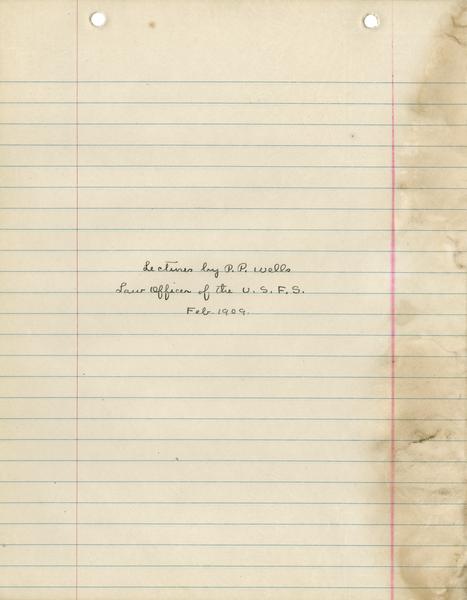 Lectures by P. P. Wells
Law Officer of the U. S. F. S.
Feb. 1909.